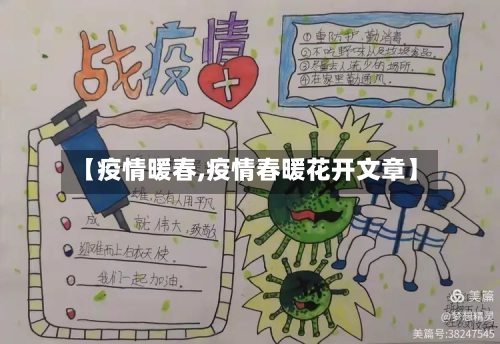 战疫情
①重防护.勤消毒
②不吃野味以及垃圾食品.
③尽量去人流少的场所.
④在家里勤通风.
【疫情暖春,疫情春暖花开文章】
难,总有人用平凡
成就伟大,致敬
迎难而上白衣天使.
我们一起加油.
美篇
@梦想精灵
美篇号:38247545